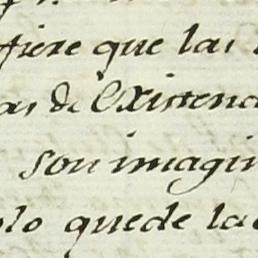 fiere que las
as de Existenc
son imagin
lo quede la